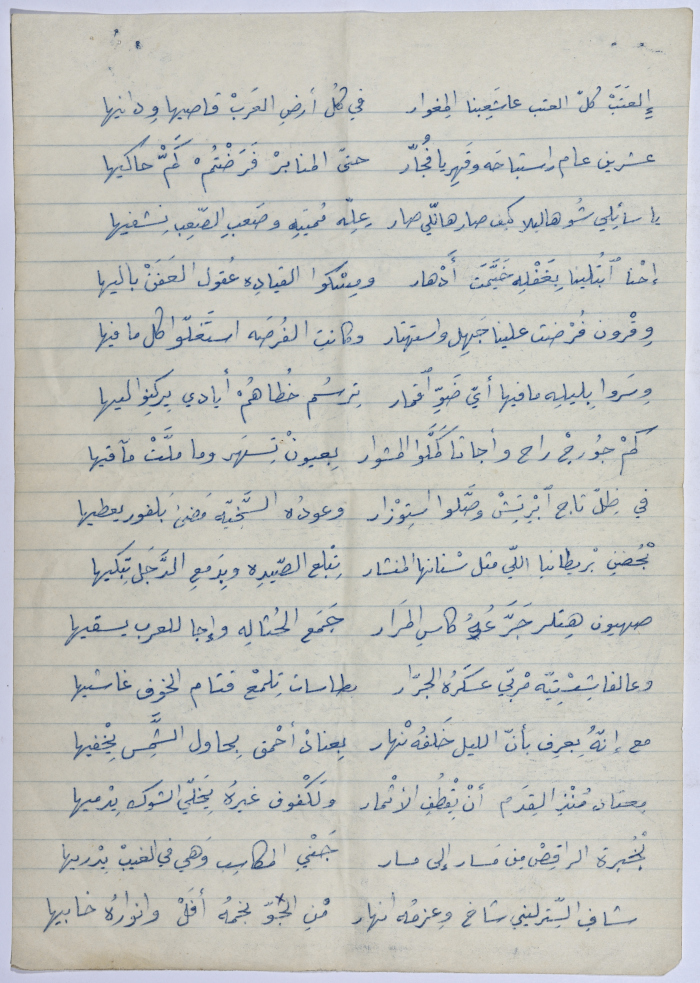 إِلعَتَبْ كلّ العتب عاشَعِبنا المِغوار في كُل أرضِ العَرَبْ قاصيها ودانيها
عشرين عام راستباحَه وقَهِر يا فُجُار حتىّ المنابرْ فَرَضْتُمْ كَمّْ حاكيها
يا سائِلي شُو هالبلا كيف صار هالّلي صار عِلِّه مُميتِه وصَعبِ الصّعِب نِشفيها
إحْنا ٱبْتُلينا بِغَفْلِه خَيَّمَت أَدْهار ومِسْكوا القيادِه عُقول العَفَنْ باليها
وِقْرون فُرْضت علينا جَهِل واستهتار وكانتِ الفُرصَه استَغلّوا كل ما فيها
وِسَروا بِليلِه مافيها أيّ ضَوِّ ٱقمار تِرسُم خُطاهُمْ أيادي بِركنِوا ليها
كمْ جُورجْ راح وأجانا كَمَّلوا المشوار بِعيونْ تِسهَر وما ملَّتْ مآقيها
في ظِلّ تاج ٱبْرِتِشْ وصَّلوا استِوْزار وعودُه السَّخِيِّه مَضىٰ بَلفور يعطيها
بْحُضنِ بْريطانيا اللّي مثل سْنانها المنشار تِبْلع الصّيدِه وبِدَمعِ الدَّجَل تِبكيها
صهيون هِتلر جَرَّعُهْ كاسِ المَرَار جَمَع الحُثالِه وإجا للعرب يسقيها
وعالفاشِسْتِيِّه مْرَبّي عسكَرُه الجرّار بطاسات تِلمَعْ قتام الخوف غاشيها
مع إنّهُ بِعرِف بأنّ الليل خَلفُه نْهار بِعنادْ أحْمق بحاول الشَّمِس يِخْفيها
مِعتاد مُنْذِ القِدَم أنْ يُقْطُفِ الأثْمار ولَكْفوف غيرُه يَخَلّي الشوك يِدْميها
بْخُبرة الراقِصْ مِن مَسار إلى مسار جَنْيِ المكاسِب وَهي في الغيبْ يِدْريها
شافِ السِّترليني شاخ وِعزمُه انهار مْنِ الجَّوّ نجمُهْ أفَلْ وانوارُه خابيها